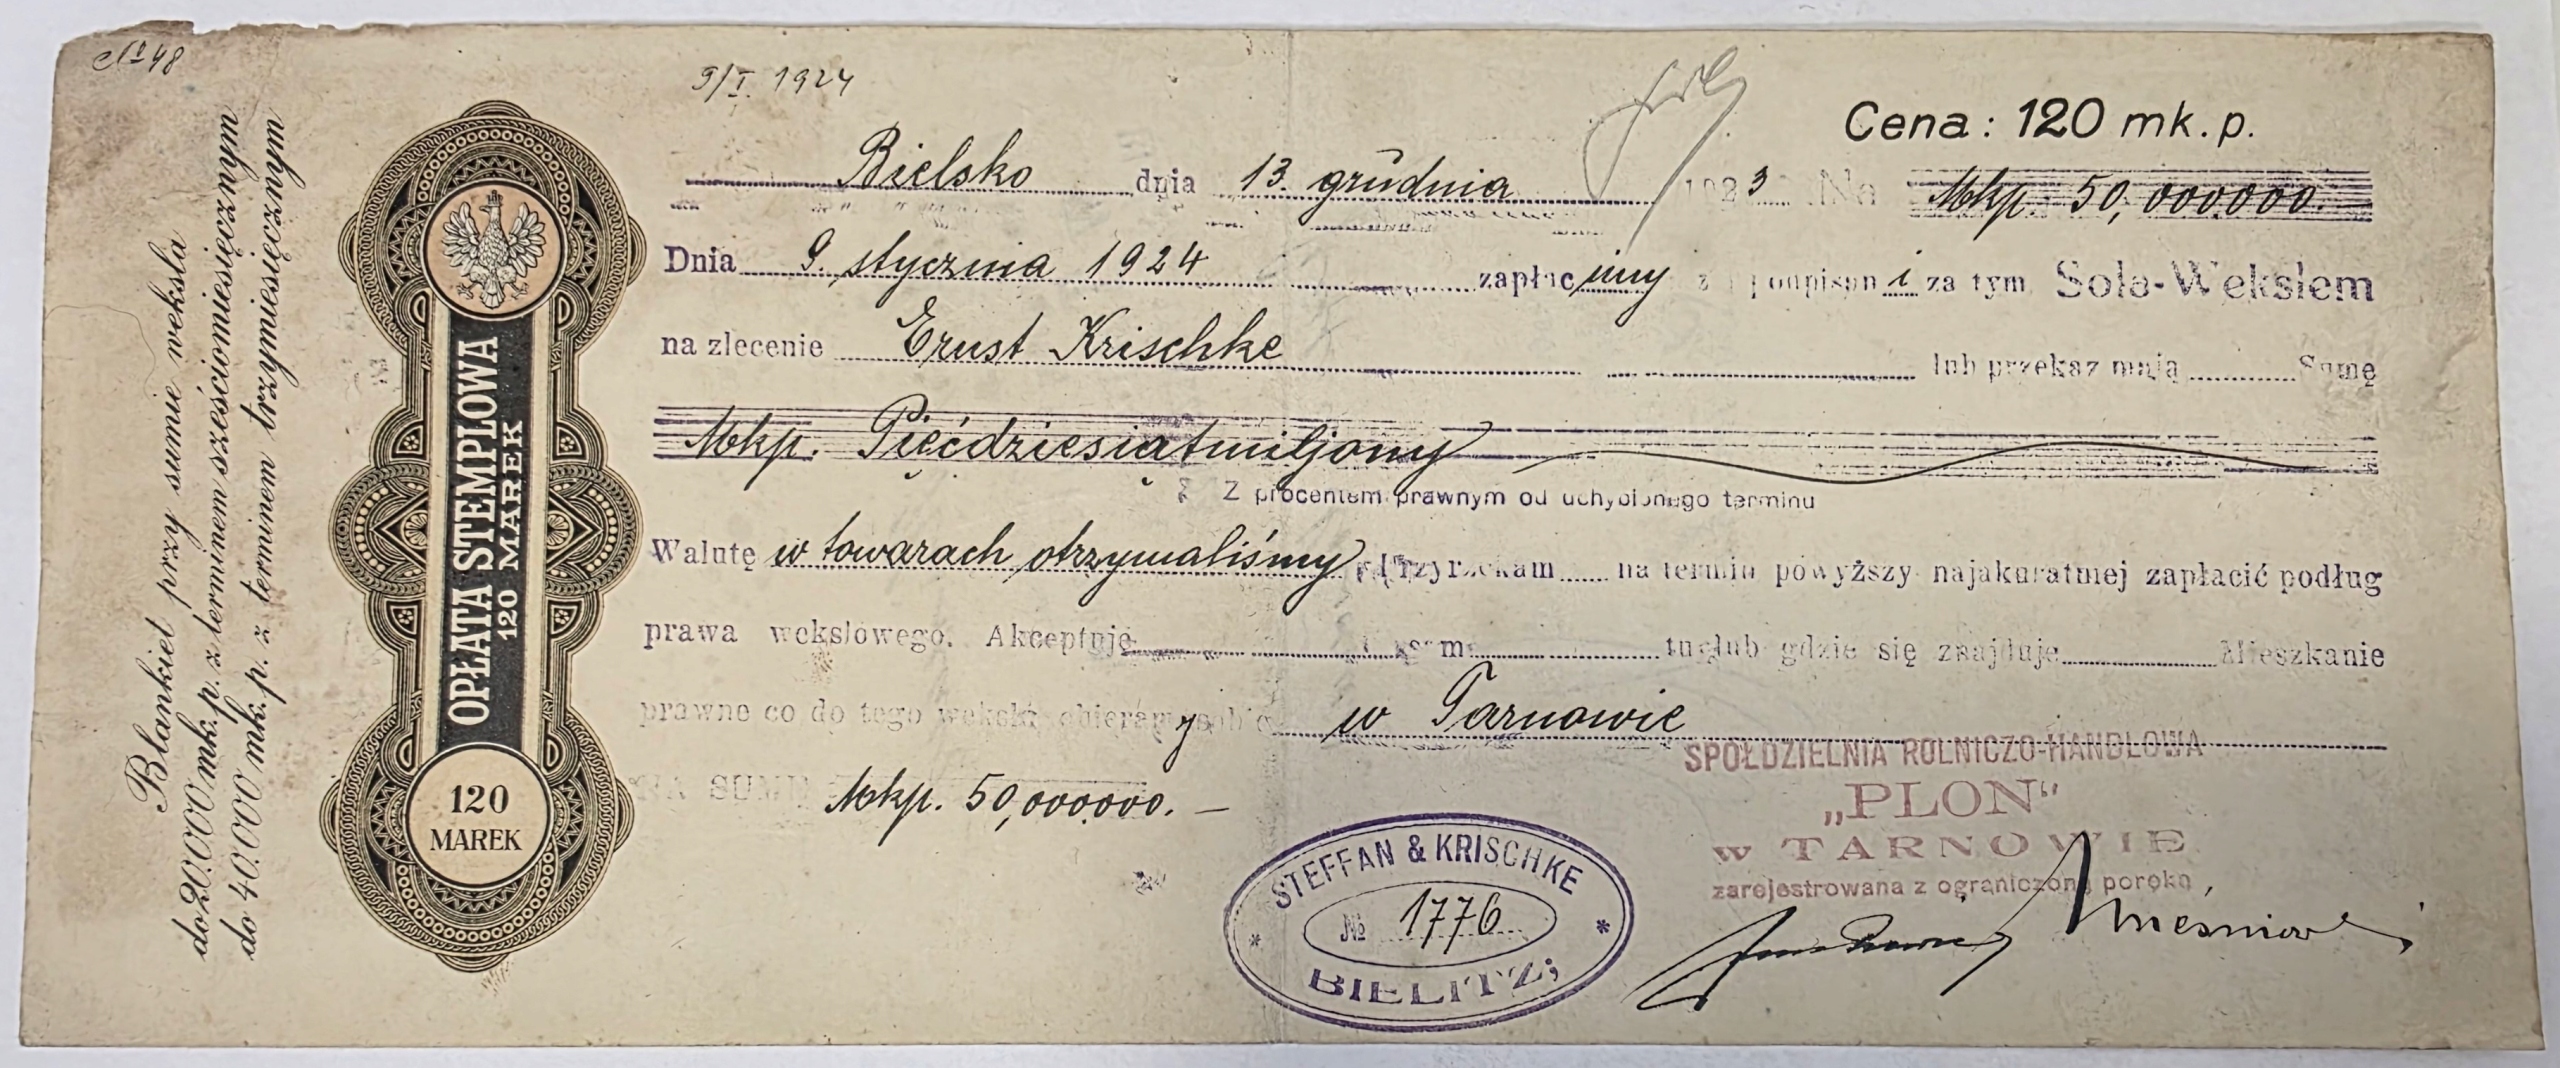 № 48
9/I. 1924
Cena: 120 mk. p.
Bielsko dnia 13. grudnia 1923 Na Mkp. 50,000.000.
Dnia 9. stycznia 1924 zapłacimy podpisani za tym Sola-Wekslem
na zlecenie Ernst Krischke lub przekaz mują Sumę
Mkp. Pięćdziesiątmiljony
Z procentem prawnym od uchybionego terminu
Walutę w towarach otrzymaliśmy i przyrzekam na termin powyższy najakuratniej zapłacić podług
prawa wekslowego. Akceptuję tuglub gdzie się znajduje Mieszkanie
prawne co do tego weksla obieramy sobie w Tarnowie
NA SUMĘ Mkp. 50,000.000. —
SPÓŁDZIELNIA ROLNICZO-HANDLOWA
„PLON“
w TARNOWIE
zarejestrowana z ograniczoną poręką
STEFFAN & KRISCHKE
№ 1776
BIELITZ;
OPŁATA STEMPLOWA
120 MAREK
120
MAREK
Blankiet przy sumie weksla
do 20.000 mk. p. z terminem sześciomiesięcznym
do 40.000 mk. p. z terminem trzymiesięcznym